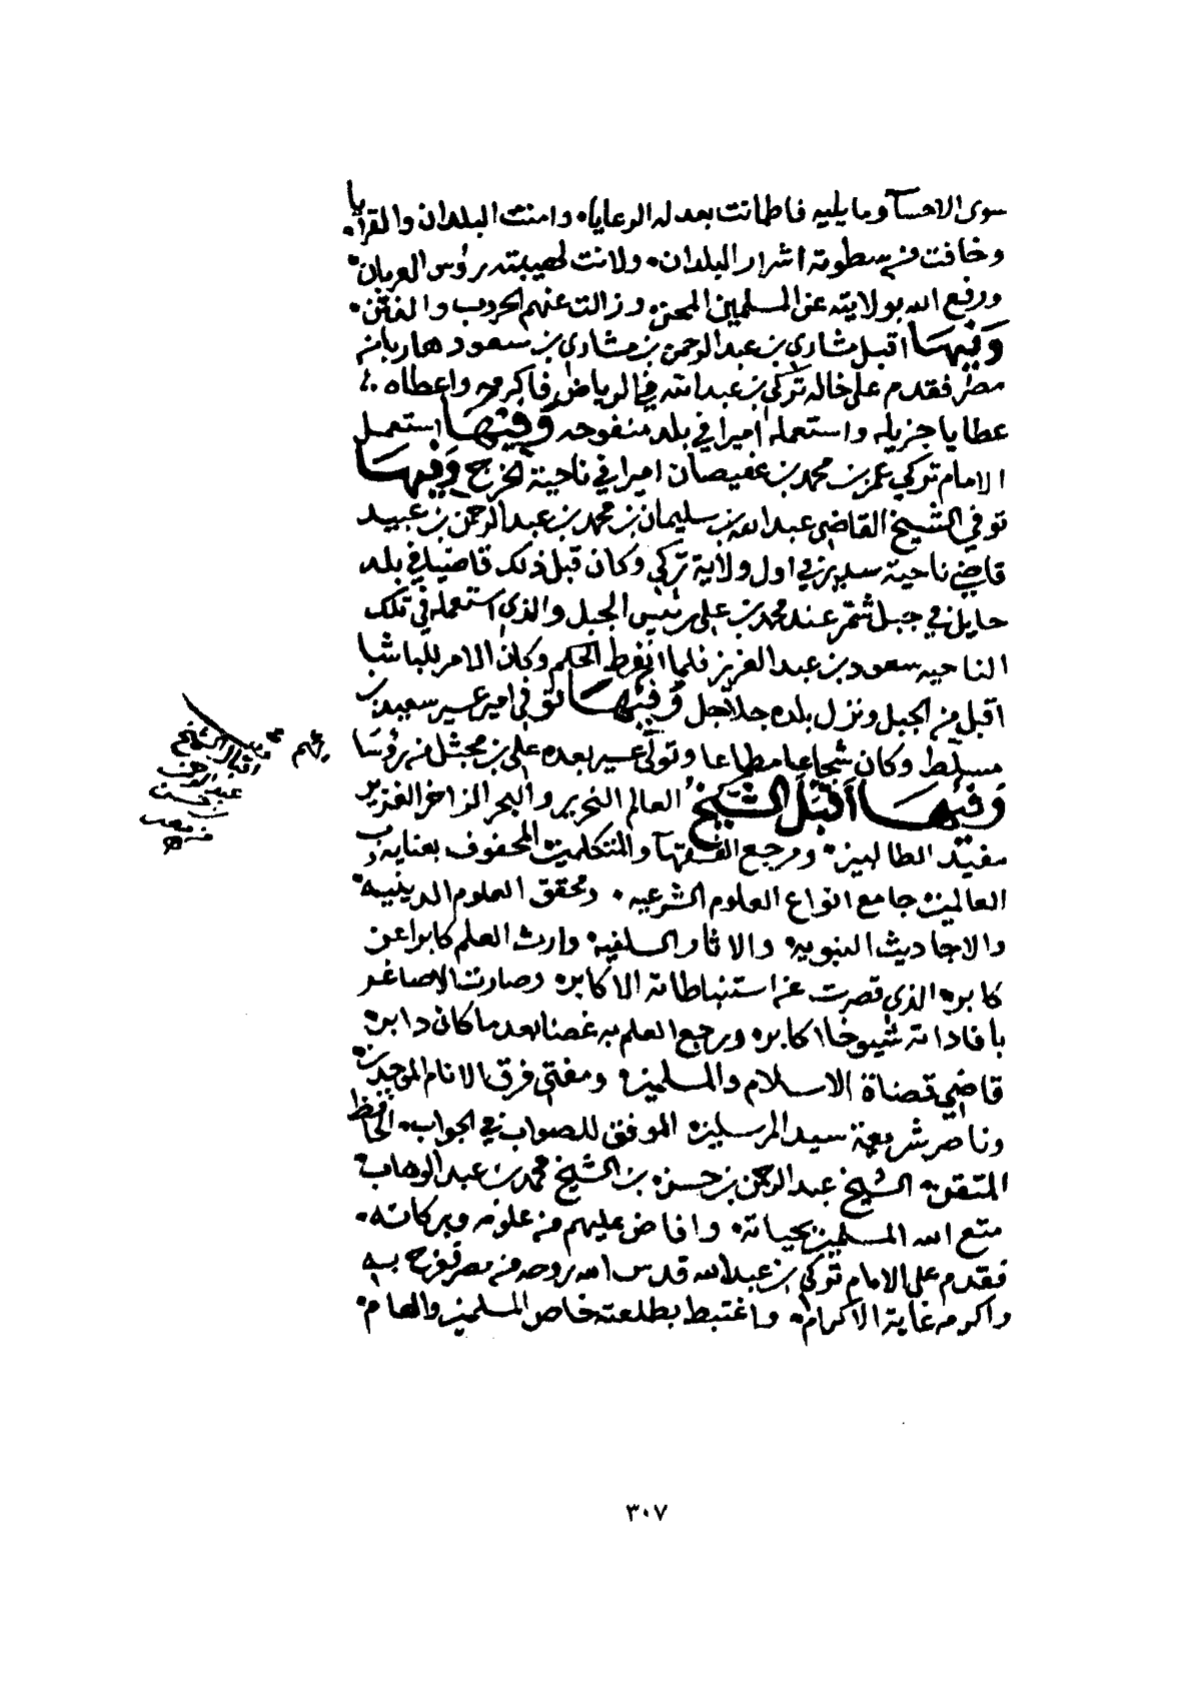 سوى الاحسآ وما يليه فاطمانت بعدله الرعايا، وامنت البلدان والقرايا
وخافت من سطوته اشرار البلدان، ولانت لهيبته رؤس العربان،
ورفع الله بولايته عن المسلمين المحن، وزالت عنهم الحروب والفتن،
وَفِيهَا اقبل مشاري بن عبد الرحمن بن مشاري بن سعود هاربا من
مصر فقدم على خاله تركي بن عبد الله في الرياض فاكرمه واعطاه
عطايا جزيله واستعمله اميرا في بلد منفوحه وَفِيْهَا استعمل
الامام تركي عمر بن محمد بن عفيصان اميرا في ناحية الخرج وَفِيهَا
توفي الشيخ القاضي عبد الله بن سليمان بن محمد بن عبد الرحمن بن عبيد
قاضي ناحية سدير في اول ولاية تركي وكان قبل ذلك قاضيا في بلد
حايل في جبل شمر عند محمد بن علي رئيس الجبل والذي استعمله في تلك
الناحيه سعود بن عبد العزيز فلما انفرط الحكم وكان الامر للباشا
اقبل من الجبل ونزل بلده جلاجل وَفِيْهَا توفي امير عسير سعيد بن
مسلّط وكان شجاعا مطاعا وتولّى عسير بعده علي بن مجثل من رؤسَا
ئهم
وَفِيْهَا أَقْبَلَ الشَّيْخُ العالم النحرير والبحر الزاخر الغزير
مفيد الطالبين، ومرجع الفقهآ والمتكلمين المحفوف بعناية رب
العالمين جامع انواع العلوم الشرعيه، ومحقق العلوم الدينيه،
والاحاديث النبويه والاثار السلفيه وارث العلم كابرا عن
كابره الذي قصرت عن استنباطاته الاكابره وصارت الاصاغر
بافاداته شيوخا اكابره ورجع العلم به غضا بعد ما كان دابره
قاضي قضاة الاسلام والمسلمين، ومفتي فرق الانام الموحدين
وناصر شريعة سيد المرسلين، الموفق للصواب في الجواب، الحافظ
المتقن، الشيخ عبد الرحمن بن حسن، بن الشيخ محمد بن عبد الوهاب
متع الله المسلمين بحياته، وافاض عليهم من علومه وبركاته،
فقدم على الامام تركي بن عبد الله قدس الله روحه من مصر ففرح به
واكرمه غاية الاكرام، واغتبط بطلعته خاص المسلمين والعام،
اقبال الشيخ
عبد الرحمن
بن حسن
من مصر
٣٠٧